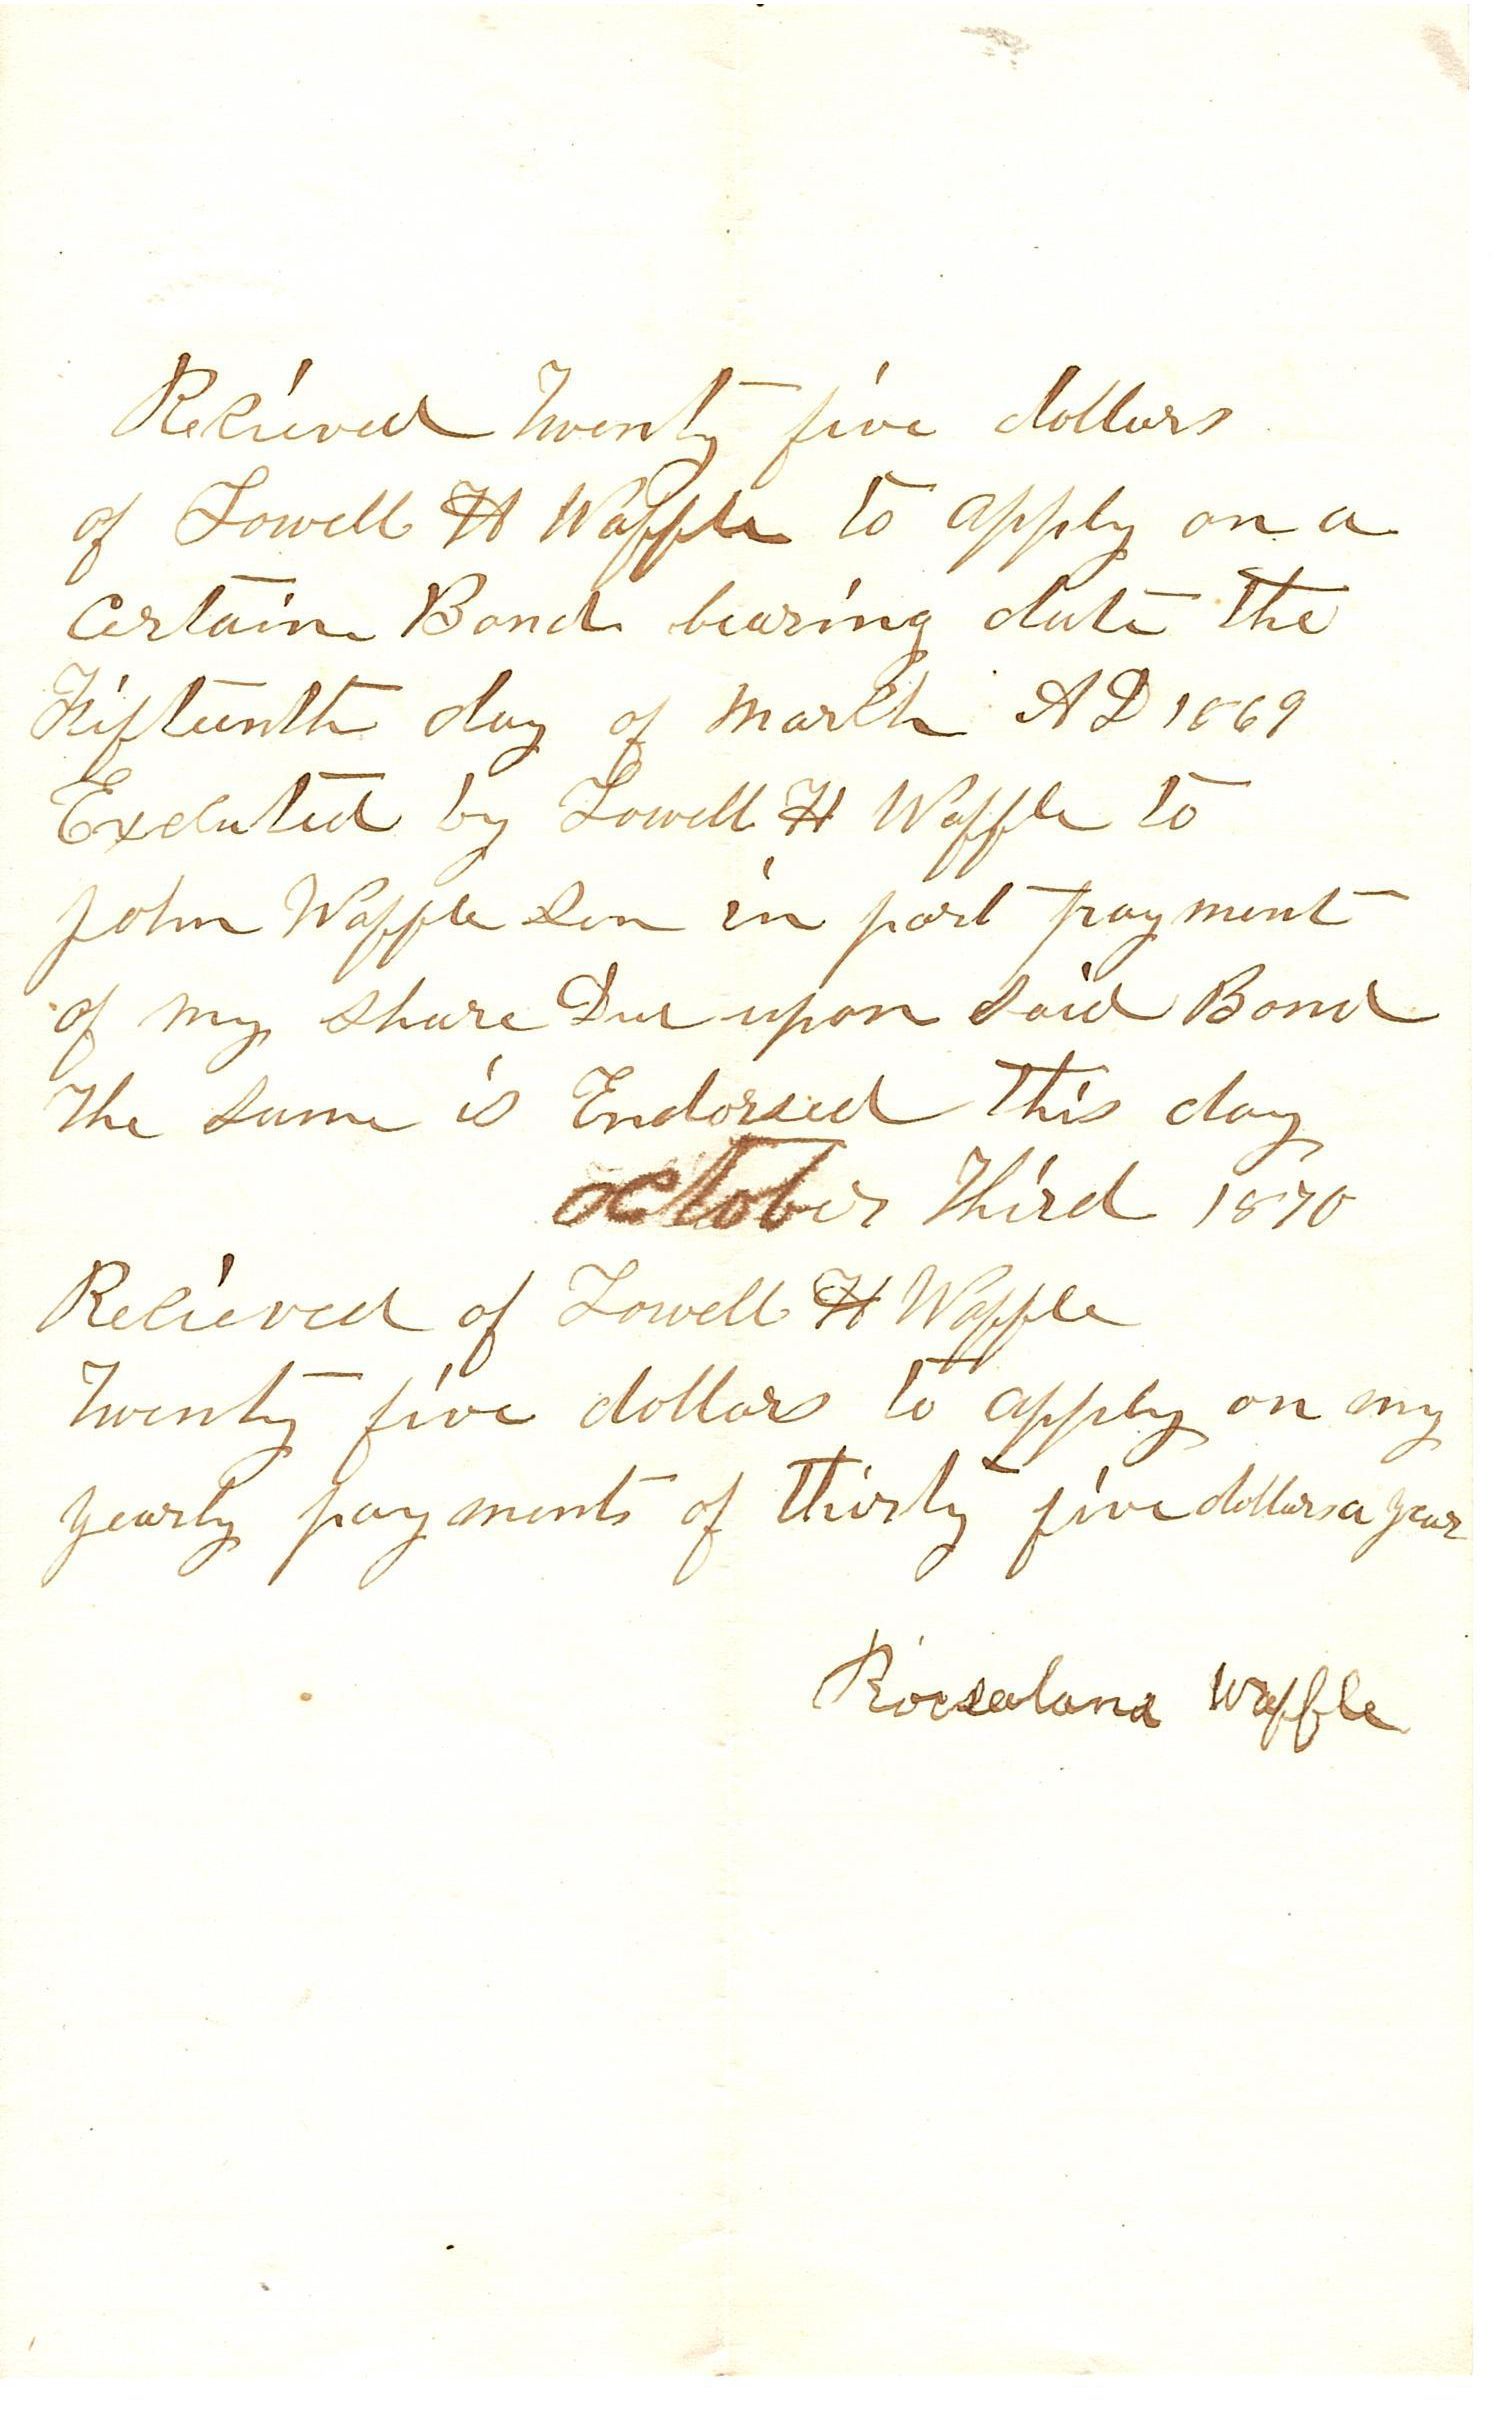 Recieved Twenty five dollars
of Lowell H Waffle to apply on a
Certain Bond bearing date the
Fifteenth day of March AD 1869
Executed by Lowell H Waffle to
John Waffle Sen in part payment
of my share Due upon Said Bond
The same is Endorsed This day
October Third 1870
Recieved of Lowell H Waffle
Twenty five dollars to apply on my
yearly payments of thirty five dollars a year
Roxselana Waffle